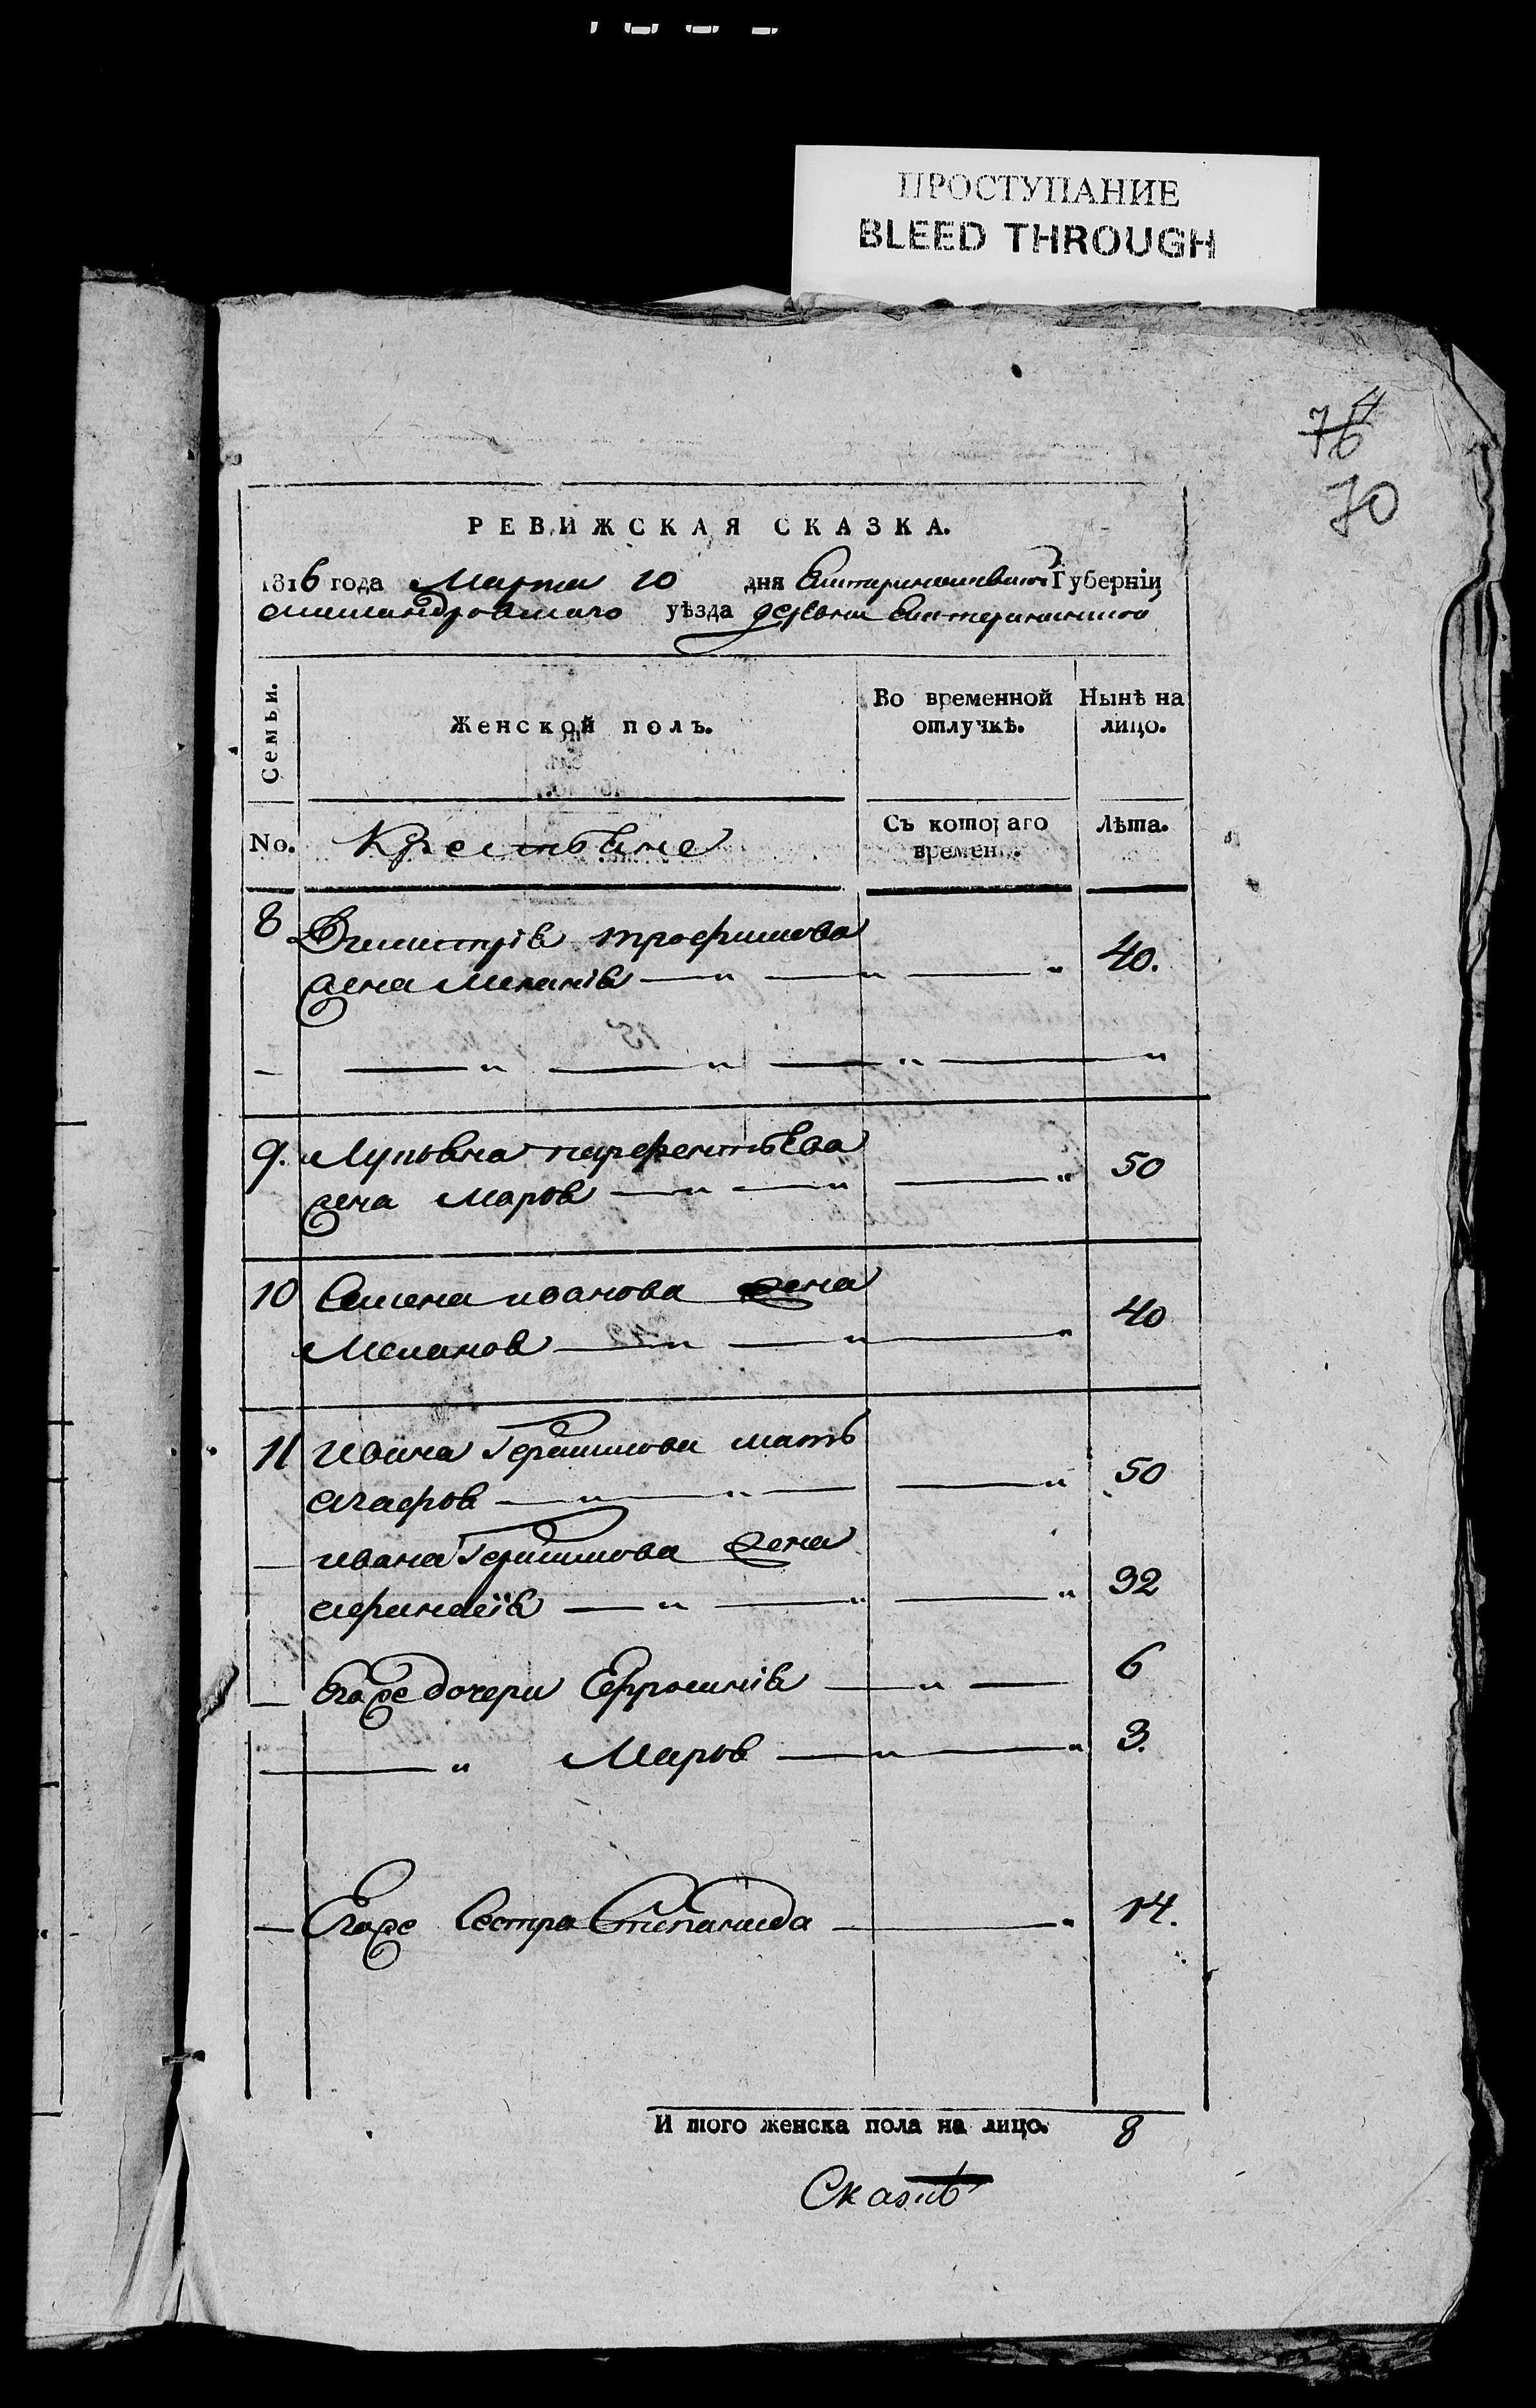 ПРОСТУПАНИЕ
BLEED THROUGH
76 4
70
РЕВИЖСКАЯ СКАЗКА.
1816 года Марта 10 дня Екатеринославской Губерніи
александровскаго уѣзда деревни Екатериновкой
Семьи.
Женской полъ.
Во временной отлучкѣ.
Нынѣ на лицо.
No.
Крестьяне
Съ котораго времени.
Лѣта.
8 Димитрія трофимова
жена Меланія 40.
9. Лукьяна парфентьева
жена Марья 50
10 Семена иванова жена
Меланья 40
11 Ивана Герасимова мать
агафья 50
ивана Герасимова жена
афимія 32
Егоже дочери Ефросинія 6
Марья 3.
Егоже Сестра Степанида 14.
И того женска пола на лицо. 8
Сказкѣ